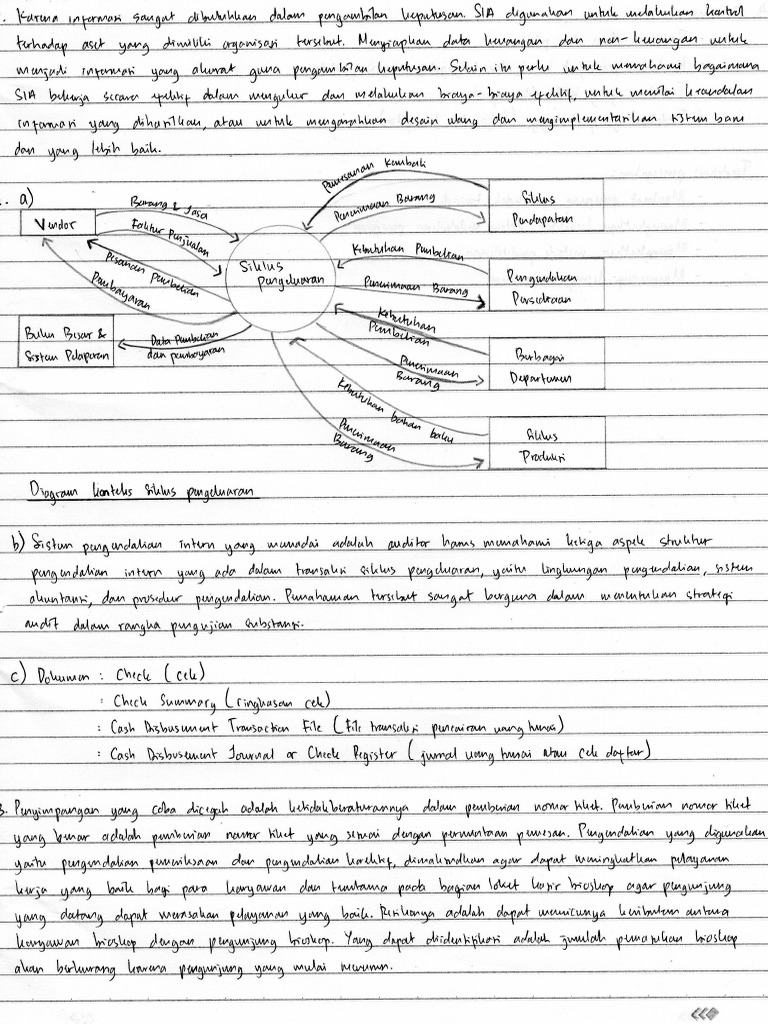 . Karena informasi sangat dibutuhkan dalam pengambilan keputusan. SIA digunakan untuk melakukan kontrol
terhadap aset yang dimiliki organisasi tersebut. Menyiapkan data keuangan dan non-keuangan untuk
menjadi informasi yang akurat guna pengambilan keputusan. Selain itu perlu untuk memahami bagaimana
SIA bekerja secara efektif dalam mengukur dan melakukan biaya-biaya efektif, untuk menilai keandalan
informasi yang dihasilkan, atau untuk mengarahkan desain ulang dan mengimplementasikan sistem baru
dan yang lebih baik.
. a)
Vendor
Barang & Jasa
Faktur Penjualan
Pesanan Pembelian
Pembayaran
Buku Besar &
Sistem Pelaporan
Data Pembelian
dan pembayaran
Siklus
pengeluaran
Pemesanan Kembali
Penerimaan Barang
Siklus
Pendapatan
Kebutuhan Pembelian
Penerimaan Barang
Pengendalian
Persediaan
Kebutuhan
Pembelian
Penerimaan
Barang
Berbagai
Departemen
Kebutuhan bahan baku
Penerimaan
Barang
Siklus
Produksi
Diagram konteks siklus pengeluaran
b) Sistem pengendalian intern yang memadai adalah auditor harus memahami ketiga aspek struktur
pengendalian intern yang ada dalam transaksi siklus pengeluaran, yaitu lingkungan pengendalian, sistem
akuntansi, dan prosedur pengendalian. Pemahaman tersebut sangat berguna dalam menentukan strategi
audit dalam rangka pengujian substansi.
c) Dokumen : Check (cek)
: Check Summary (ringkasan cek)
: Cash Disbusument Transaction File (File transaksi pencairan uang tunai)
: Cash Disbusement Journal or Check Register (jurnal uang tunai atau cek daftar)
3. Penyimpangan yang coba dicegah adalah ketidakberaturannya dalam pemberian nomor tiket. Pemberian nomor tiket
yang benar adalah pemberian nomor tiket yang sesuai dengan permintaan pemesan. Pengendalian yang digunakan
yaitu pengendalian pemeriksaan dan pengendalian korektif, dimaksudkan agar dapat meningkatkan pelayanan
kerja yang baik bagi para karyawan dan terutama pada bagian loket kasir bioskop agar pengunjung
yang datang dapat merasakan pelayanan yang baik. Resikonya adalah dapat memicunya keributan antara
karyawan bioskop dengan pengunjung bioskop. Yang dapat diidentifikasi adalah jumlah pemasukan bioskop
akan berkurang karena pengunjung yang mulai menurun.